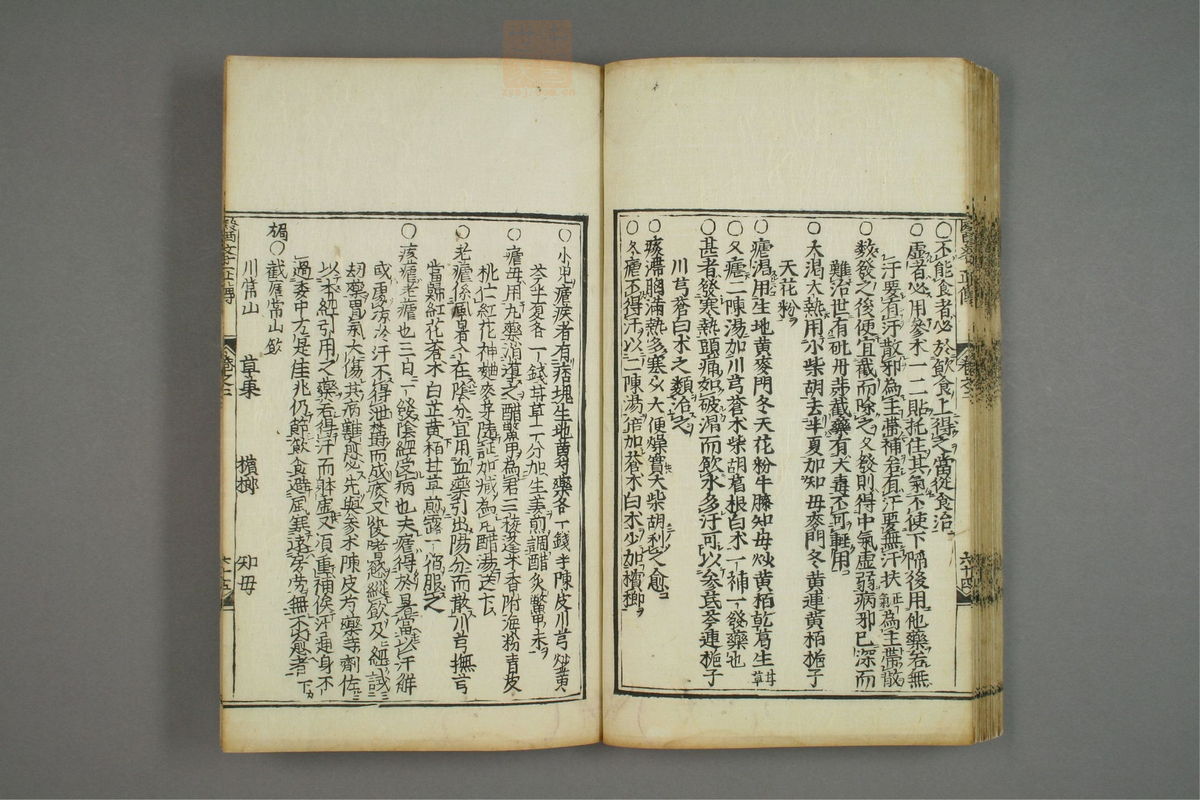 ○不能食者必於飲食上得之當從食治
○虛者必用參朮一二貼托住其氣不使下陷後用他藥若無
汗要有汗散邪為主帶補若有汗要無汗扶正氣為主帶散
○數發之後便宜截而除之久發則得中氣虛弱病邪已深而
難治世有砒丹等截藥有大毒不可輕用
○大渴大熱用小柴胡去半夏加知母麥門冬黃連黃栢梔子
天花粉
○瘧渴用生地黃麥門冬天花粉牛膝知母炒黃栢乾葛生甘草
○久瘧二陳湯加川芎蒼朮柴胡葛根白朮一補一發藥也
○甚者發寒熱頭痛如破渴而飲水多汗可以參芪芩連梔子
川芎蒼白朮之類治之
○痰滯胸滿熱多寒少大便燥實大柴胡利之愈
○冬瘧不得汗以二陳湯倍加蒼朮白朮少加檳榔
卷之二
六十四
○小兒瘧疾者有痞塊生地黃芍藥各一錢半陳皮川芎炒黃
芩半夏各一錢甘草一分加生姜煎調醋炙鱉甲末
○瘧母用丸藥消導之醋鱉甲為君三稜蓬朮香附海粉青皮
桃仁紅花神麯麥芽隨証加減為丸醋湯送下
○老瘧係風暑入在陰分宜用血藥引出陽分而散川芎撫芎
當歸紅花蒼朮白芷黃栢甘草煎露一宿服之
○痎瘧老瘧也三日一發陰經受病也夫瘧得於暑當以汗解
或因取涼於汗不得泄鬱而成痰又復嗜慾縱飲及經試
劫藥胃氣大傷其病難愈必先與參朮陳皮芍藥等劑佐
以本經引用之藥若得汗而體虛又須重補俟汗通身下
過委中方是佳兆仍節飲食避風寒遠房勞無不愈者
○截瘧常山飲
川常山
草果
檳榔
知母
六十五